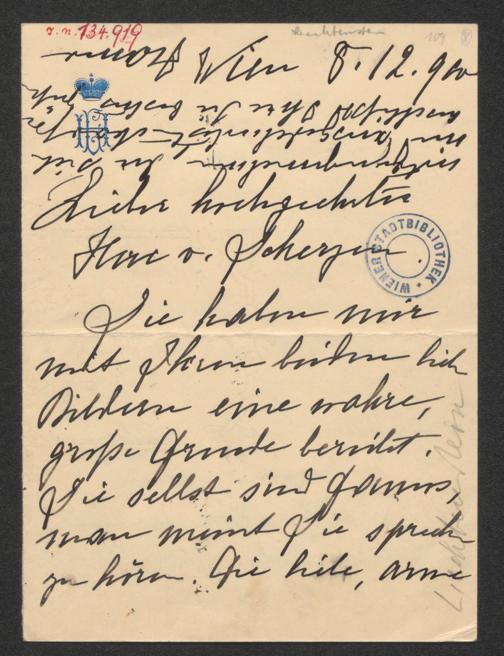 J. N. 134.919
Liechtenstein
109
Wien 8.12.900
Liebe hochgeehrte
Herr v. Scherzer.
WIENER STADTBIBLIOTHEK
Sie haben mir
mit Ihren beiden lieb
Bildern eine wahre,
große Freude bereitet.
Sie selbst sind famos,
man meint Sie sprech
zu hören. Die liebe, arme
Liechtenstein